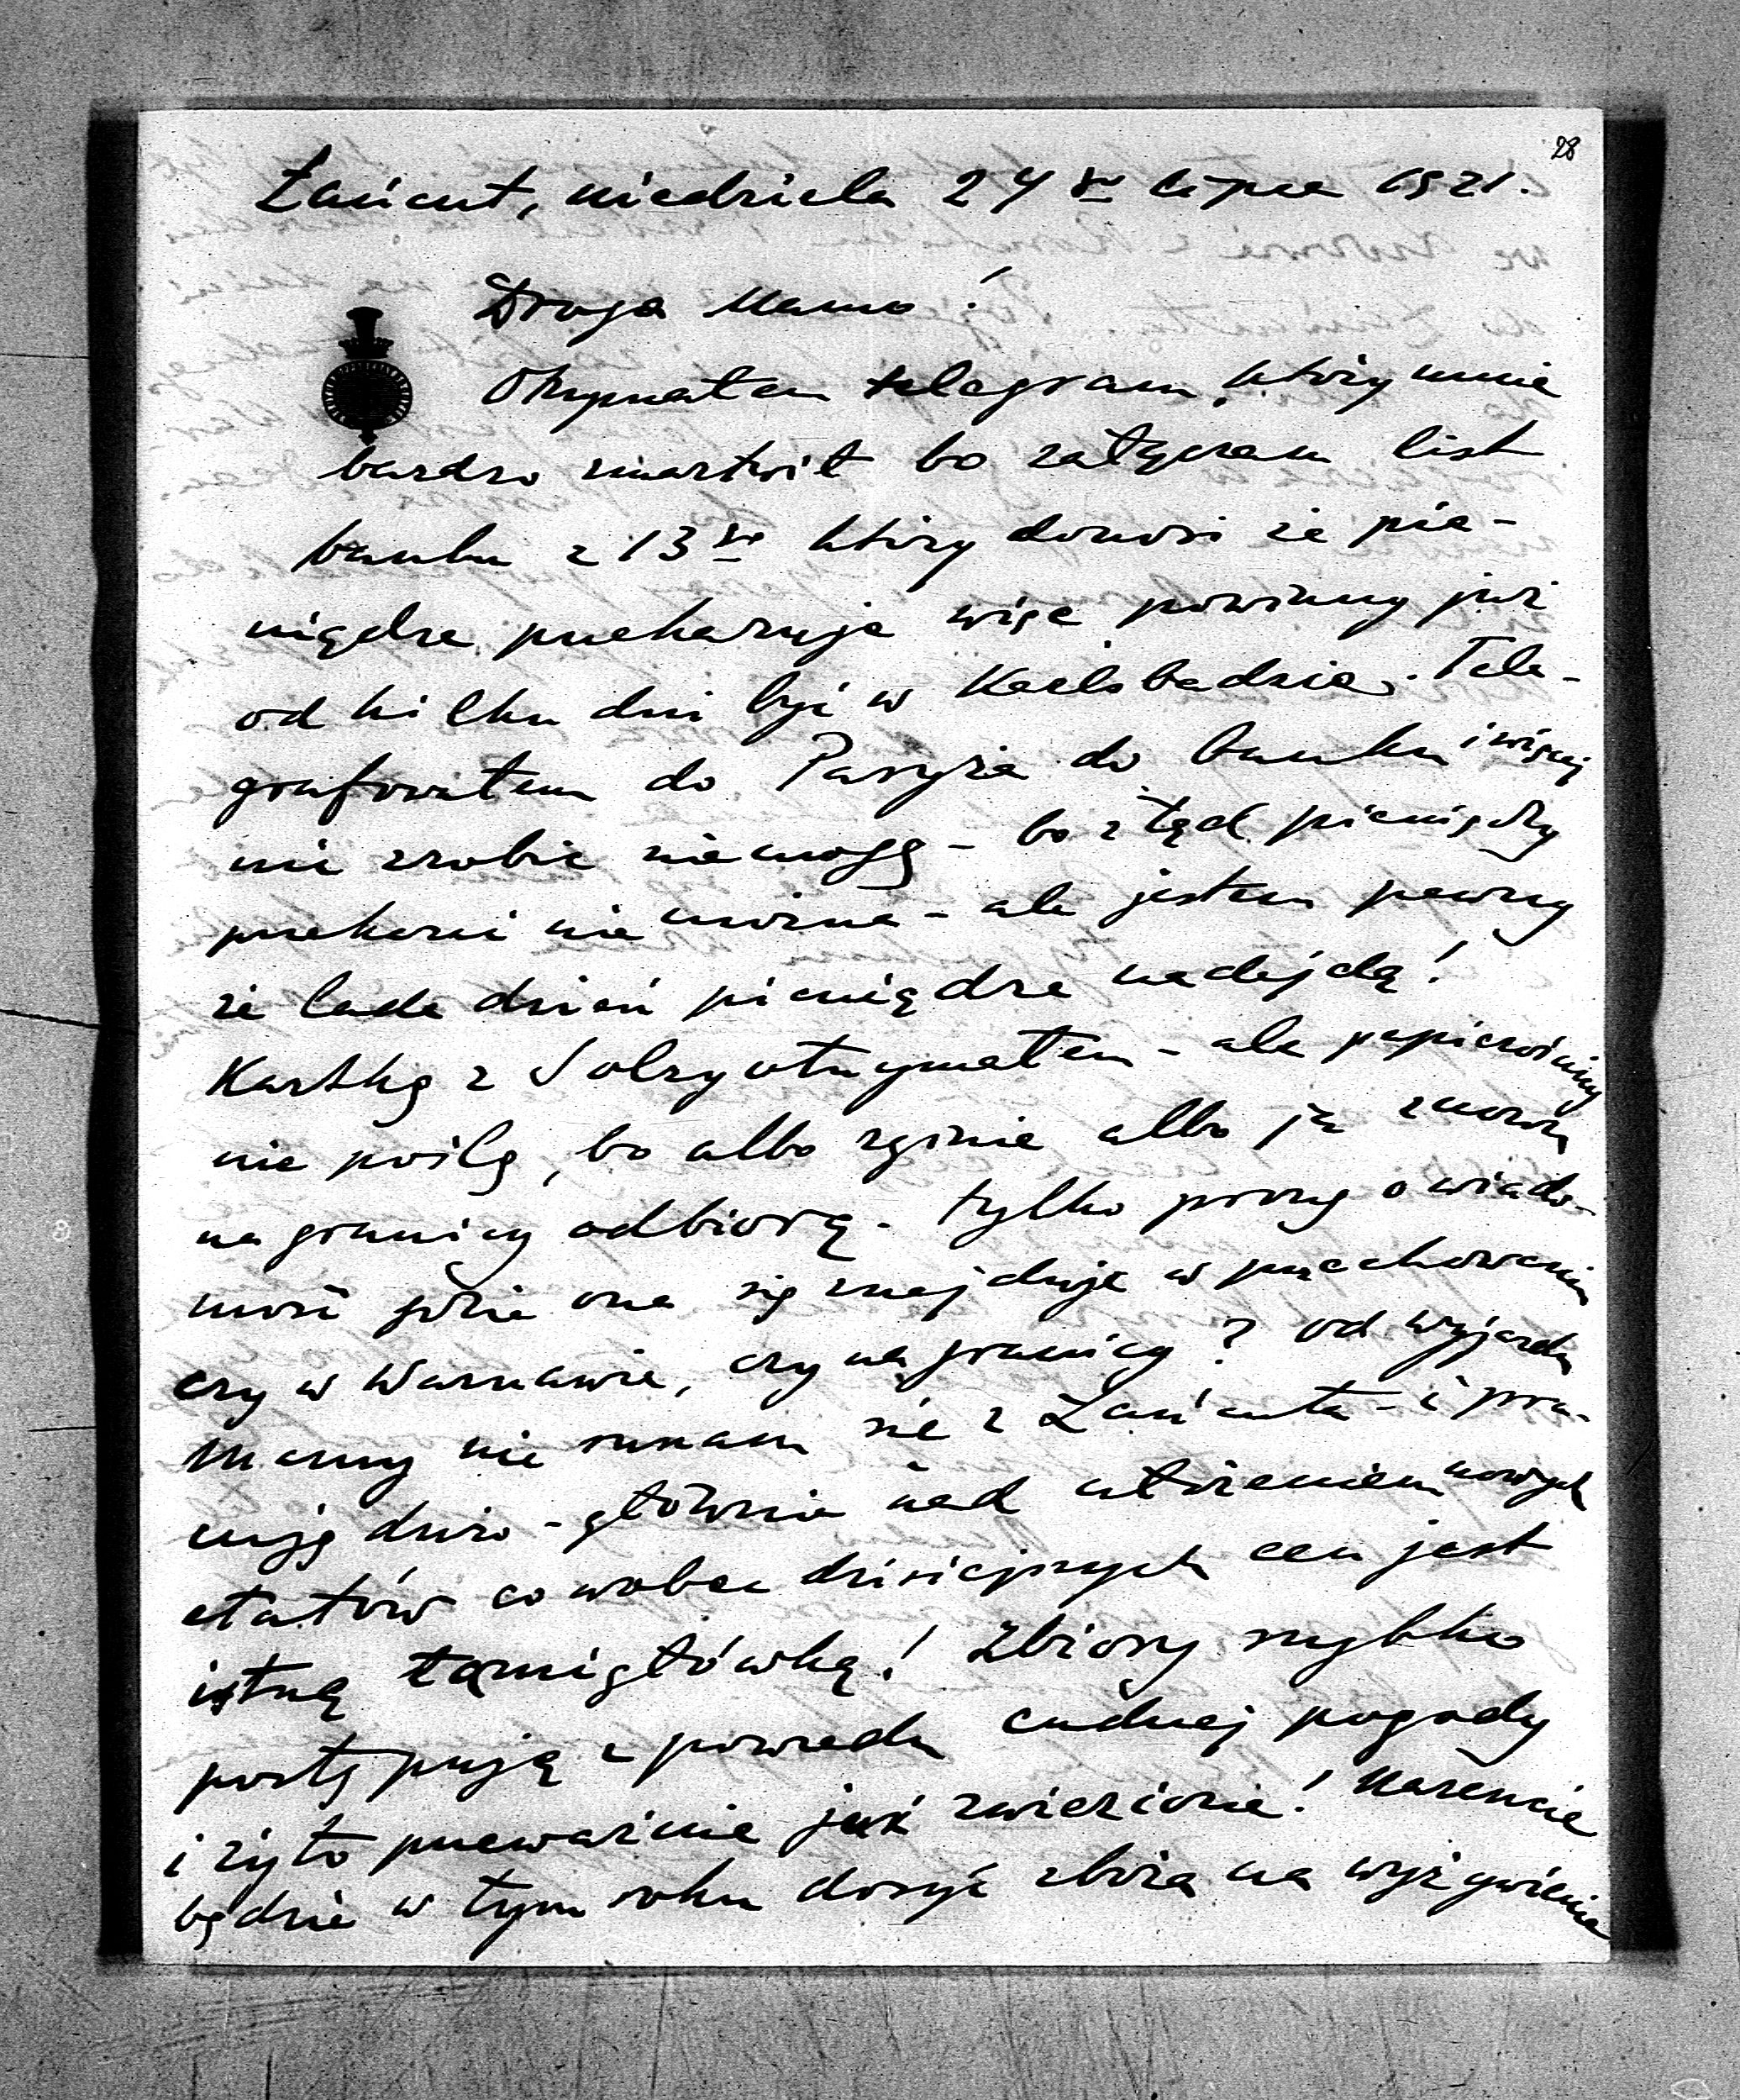 28
Łańcut, niedziela 24go lipca 1921.
Droga Mamo!
Otrzymałem telegram, który mnie
bardzo zmartwił bo załączam list
banku z 13go który donosi że pie-
niądze przekazuje więc powinny już
od kilku dni być w Karlsbadzie. Tele-
grafowałem do Paryża do banku i więcej
nic zrobić nie mogę - bo z tąd pieniędzy
przekazać nie można - ale jestem pewny
że lada dzień pieniądze nadejdą!
Kartkę z otrzymałem - ale papierośnicy
nie poślę, bo albo zginie albo ją znowu
na granicy odbiorą. Tylko proszę o wiado-
mość gdzie ona się znajduje w przechowaniu
czy w Warszawie, czy na granicy? Od wyjazdu
Mamy nie ruszam się z Łańcuta - i pra-
cuję dużo - głównie nad ułożeniem nowych
etatów co wobec dzisiejszych cen jest
istną łamigłówką! Zbiory szybko
postępują z powodu cudnej pogody
i żyto przeważnie już zwiezione! Nareszcie
będzie w tym roku dosyć zboża na wyżywienie